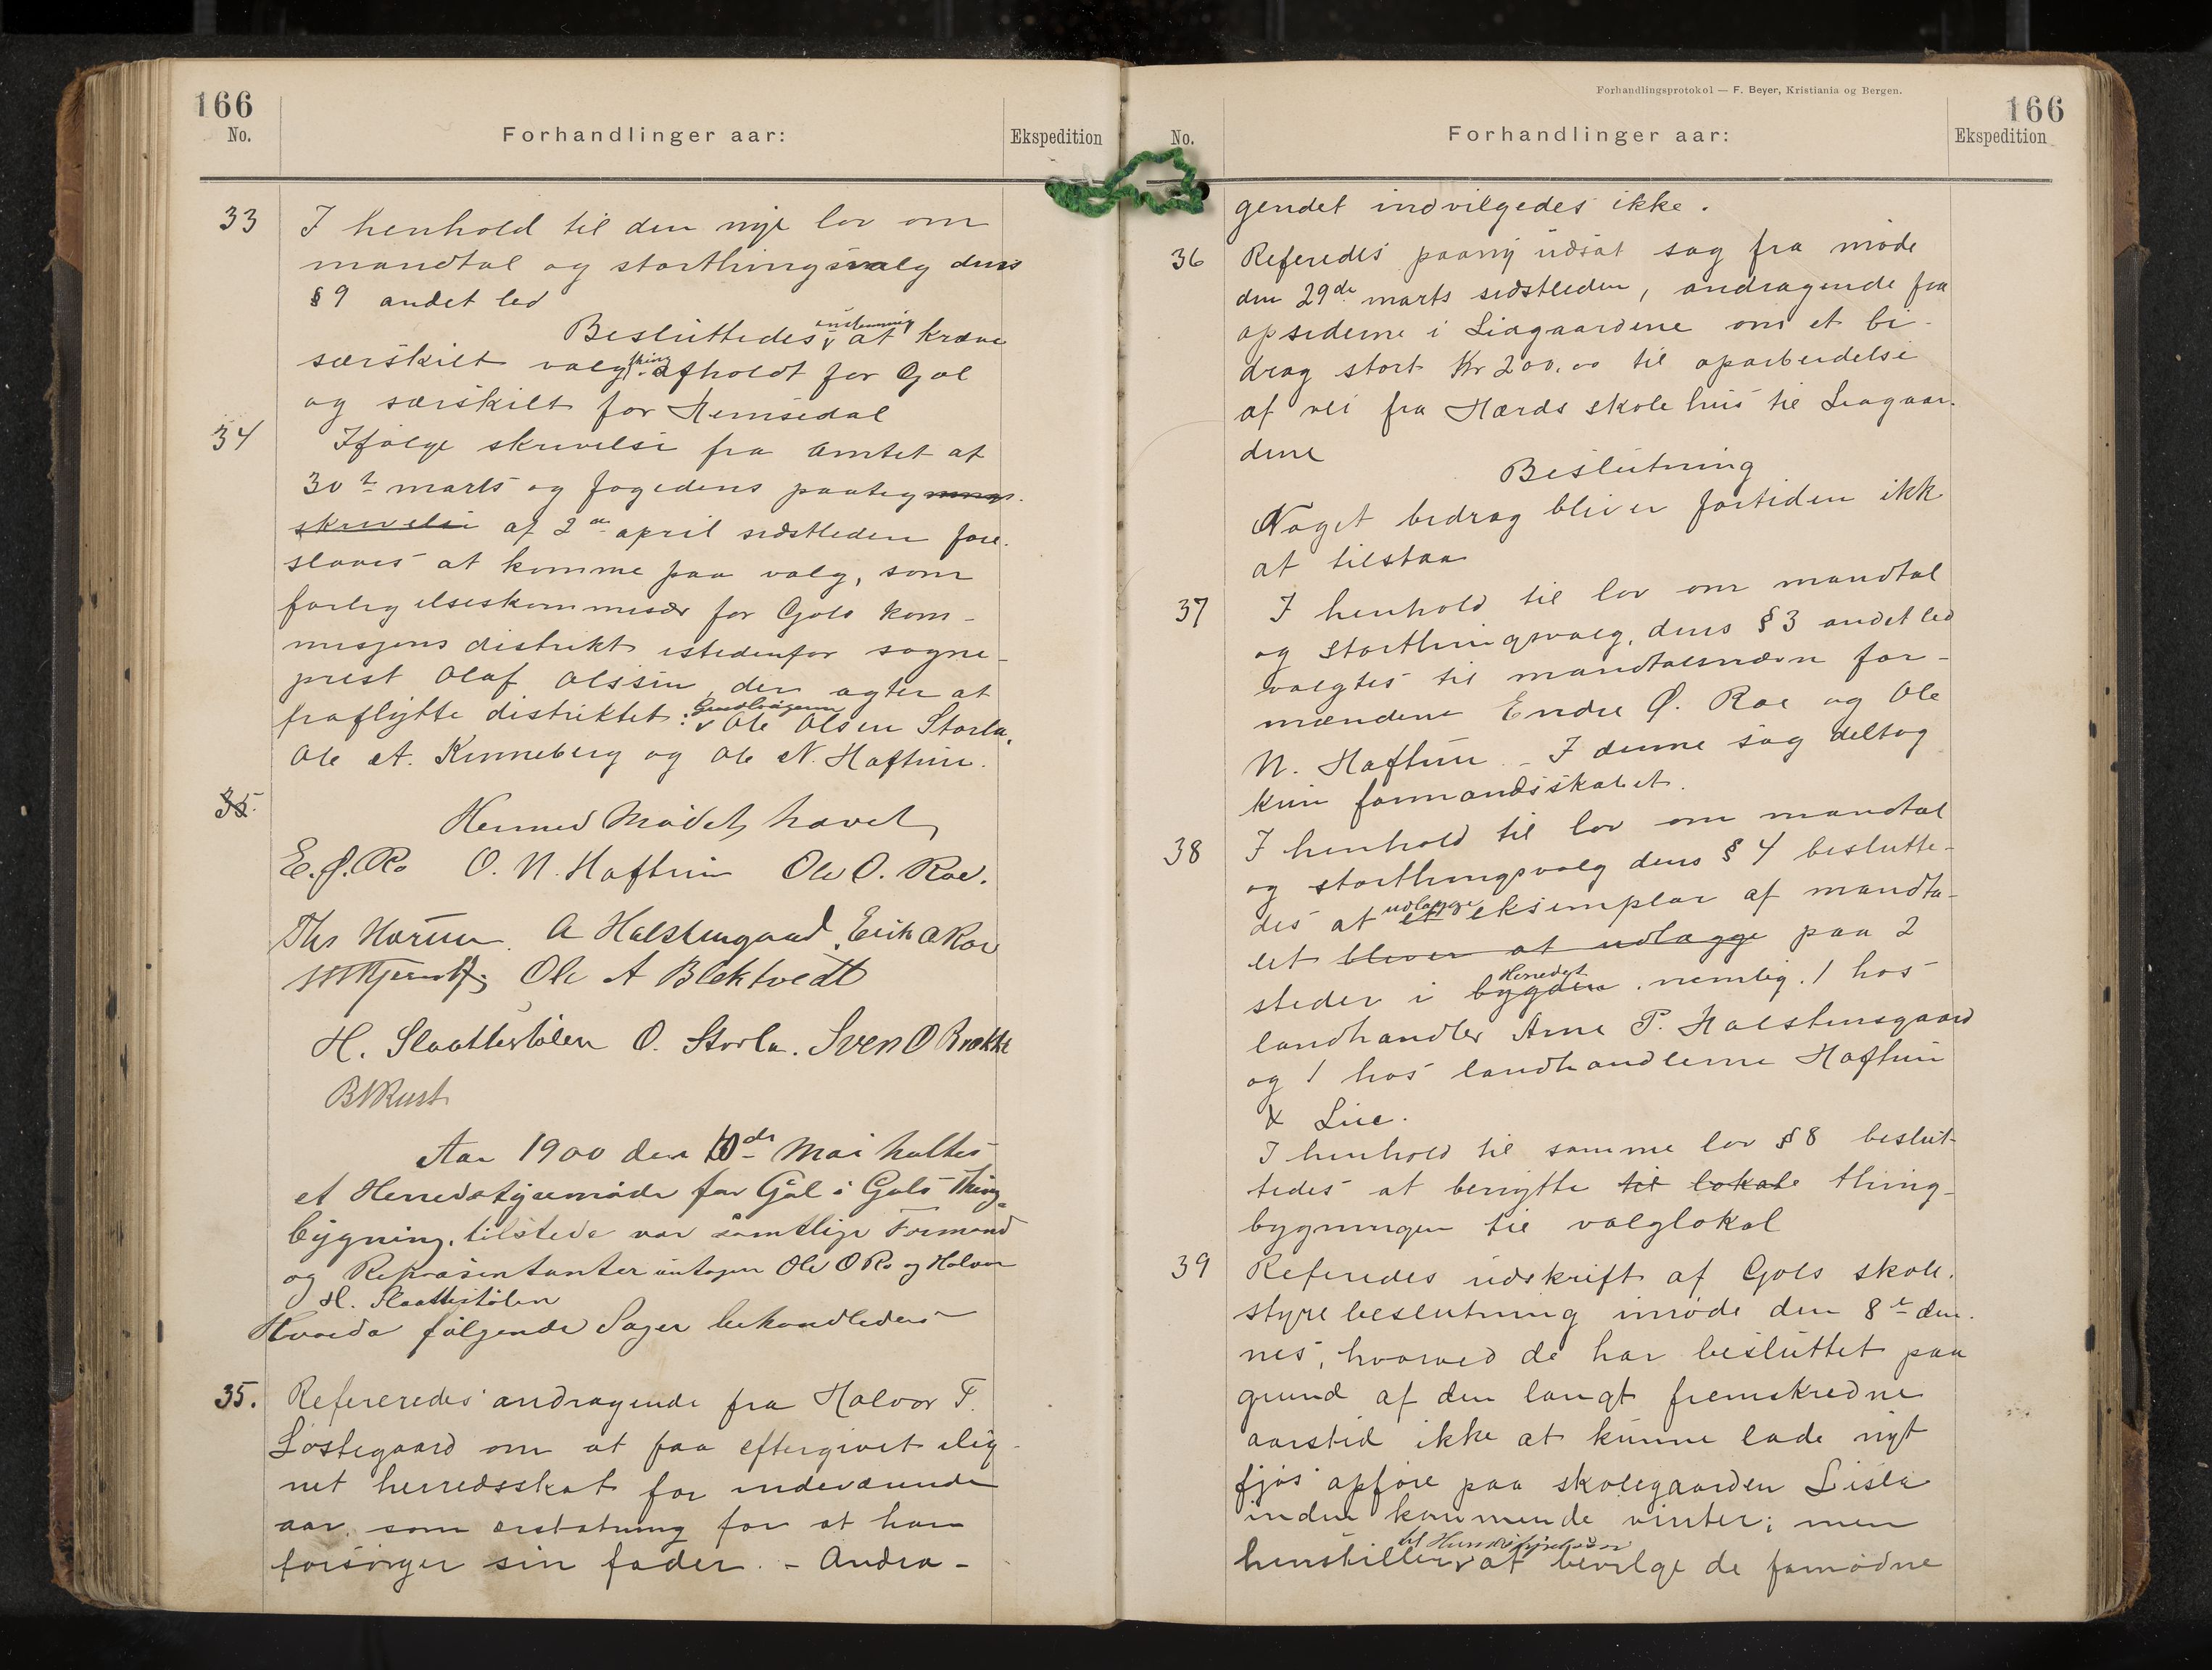 166
No.
Forhandlinger aar:
Ekspedition
33 I henhold til den nye lov om
mandtal og storthingsvalg dens
§ 9 andet led
enstemmig
Besluttedes at kræve
thing
særskilt valg afholdt for Gol
og særskilt for Hemsedal
34 Ifølge skrivelse fra Amtet af
30t marts og fogedens paategnings-
skrivelse af 2den april sidstleden fore-
slaaes at komme paa valg, som
forligelseskommisær for Gols kom-
misjons distrikt istedenfor sogne-
prest Olaf Olssen, der agter at
fraflytte distriktet: Ole Olsen Storla,
Ole A. Kinneberg og Ole N. Haftun.
35.
Hermed Mødet hævet
E.Ø.Ro O. N. Haftun Ole O. Roe.
Ths A Halstensgaard Erik O Roe
Ole A Blektvedt
H. Slaattestølen O. Storla. Sven O Brække
B Rust
Aar 1900 den 10de Mai holtes
et Herredstyremøde for Gol i Gols Thing-
bygning, tilstede var samtlige Formænd
og Repræsentanter untagen Ole O Ro og Halvor
H. Slaattestølen
Hvorda følgende Sager behandledes
35. Refereredes andragende fra Halvor T.
Løstegaard om at faa eftergivet ilig-
net herredsskat for indeværende
aar, som erstatning for at han
forsørger sin fader. - Andra-
Forhandlingsprotokol — F. Beyer, Kristiania og Bergen.
166
No.
Forhandlinger aar:
Ekspedition
gendet indvilgedes ikke.
36 Referedes paany udsat sag fra møde
den 29de marts sidstleden, andragende fra
opsiderne i Liagaardene om et bi-
drag stort Kr 200,00 til oparbeidelse
af vei fra Hærds skolehus til Liagaar-
dene
Beslutning
Noget bidrag bliver fortiden ikke
at tilstaa
37 I henhold til lov om mandtal
og storthingsvalg, dens § 3 andet led
valgtes til mandtalsnævn for-
mændene Endre Ø. Roe og Ole
N. Haftun. - I denne sag deltog
kun formandsskabet.
38 I henhold til lov om mandtal
og storthingsvalg dens § 4 beslutte-
udlægge
des at et eksemplar af mandta-
let bliver at udlægge paa 2
Herredet
steder i bygden, nemlig. 1 hos
landhandler Arne P. Halstensgaard
og 1 hos landhandlerne Haftun
& Lie.
I henhold til samme lov § 8 beslut-
tedes at benytte til lokale thing-
bygningen til valglokal
39 Referedes udskrift af Gols skole-
styre beslutning i møde den 8de den-
nes, hvorved de har besluttet paa
grund af den langt fremskredne
aarstid ikke at kunne lade nyt
fjøs opføre paa skolegaarden Lisla
inden kommende vinter; men
til Herredstyrelsen
henstiller at bevilge de fornødne